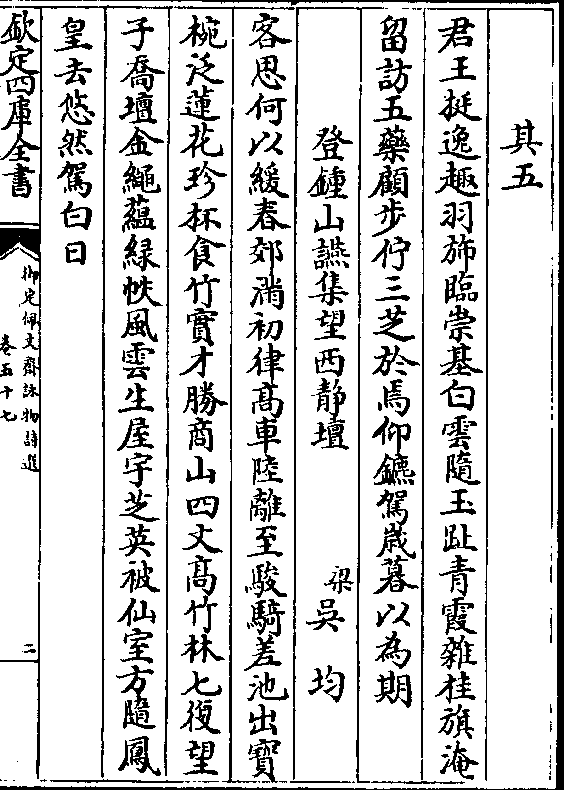 其五
君王挺逸趣羽斾臨崇基白雲隨玉趾青霞雜桂旗淹
留訪五藥顧步佇三芝於焉仰鑣駕歲暮以為期
登鍾山讌集望西靜壇
梁吳均
客思何以緩春郊滿初律髙車陸離至駿騎差池出寳
椀泛蓮花珍杯食竹實才勝商山四文髙竹林七復望
子喬壇金繩藴緑帙風雲生屋宇芝英被仙室方隨鳳
皇去悠然駕白日
欽定四庫全書
御定佩文齋詠物詩選
卷五十七
二